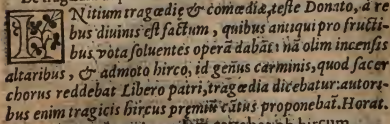 INitium tragœdię & comœdiæ, teste Donato, à re
bus diuinis est factum, quibus antiqui pro fructi-
bus vota soluentes operā dabāt: nā olim incensis
altaribus, & admoto hirco, id genus carminis, quod sacer
chorus reddebat Libero patri, tragœdia dicebatur: autori-
bus enim tragicis hircus premiū cātus proponebat̄. Horat.